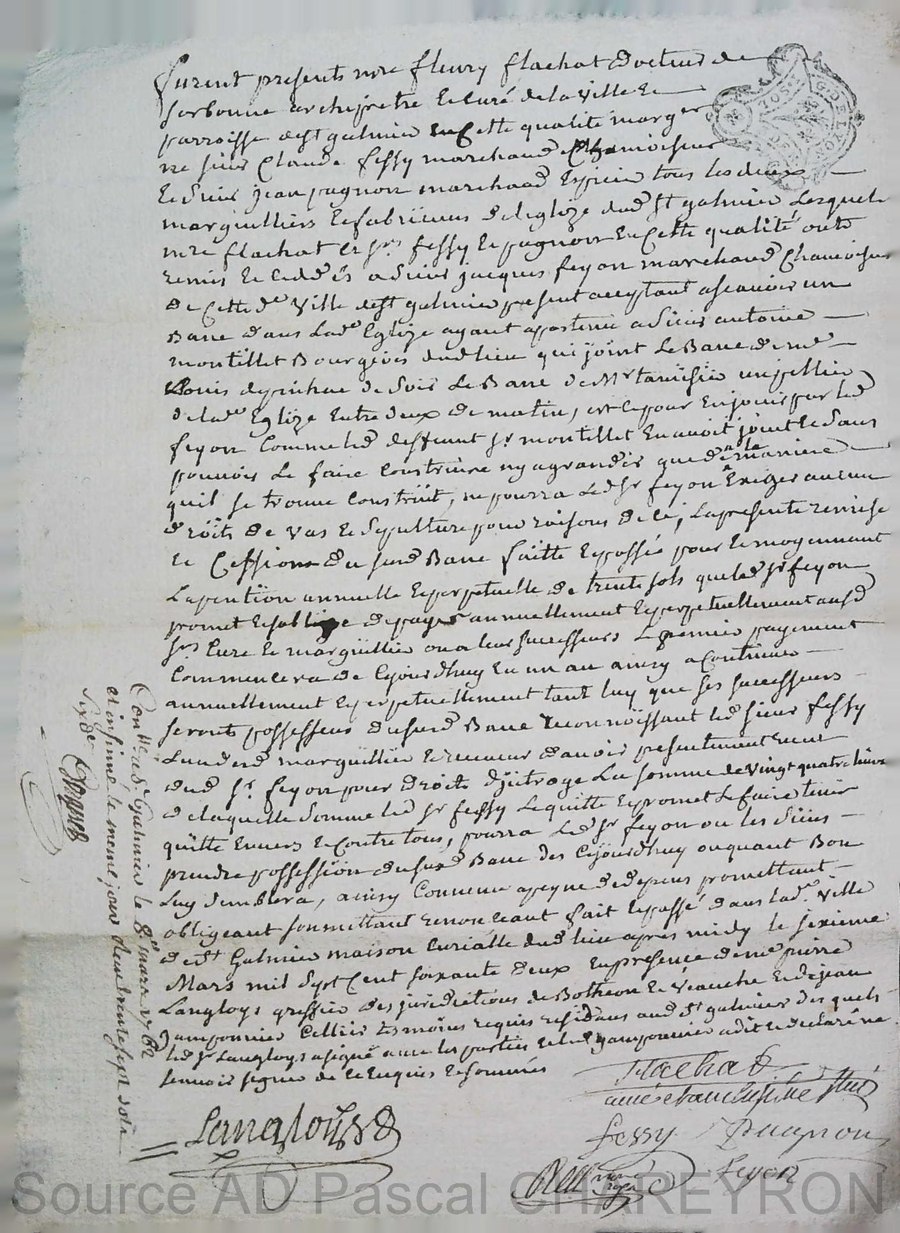 furent presents mre fleury flachat docteur de
sorbonne archipretre Et curé de la ville Et
parroisse de st galmier En Cette qualité marger
ne sieur Claude fessy marchand Chamoiseur
Et sieur jean pagnon marchand Epicier tous les deux
marguilliers Et fabriciens de leglize dud st galmier Lesquels
mre flachat Et srs fessy Et pagnon En Cette qualité ont
remis Et ceddés a sieur jacques feyon marchand Chamoiseur
de Cette de ville de st galmier present acceptant ascavoir un
Banc dans Lade Eglize ayant apartenu a sieur antoine
montillet Bourgeois dud lieu qui joint Le Banc de me
Louis depichac de soir Le Banc de Mr tamisier un pillier
de lade Eglize Entre deux de matin, Et ce pour En jouir par led
feyon Comme led deffunt sr montillet En avoit jouit Et sans
pouvoir Le faire Construire ny agrandir que de la maniere
quil se trouve Construit, ne pourra Led sr feyon Exiger aucun
droits de vas Et sepulture pour raisons de ce, La presente remise
Et Cession du susd Banc faitte Et passée pour Et moyennant
La pention annuelle Et perpetuelle de trente sols que led sr feyon
promet Et soblige de payer annuellement Et perpetuellement ausd
srs Curé Et marguillier ou a leur successeurs Le premier payement
Commencera de Cejourdhuy En un an ainsy a Continuer
annuellement Et perpetuellement tant luy que ses successeurs
seront possesseurs du susd Banc reconnoissant led sieur fessy
Lun desd marguillier Et receveur davoir presentement receu
dud sr feyon pour droits dintroge La somme de vingt quatre livres
de laquelle somme led sr fessy Le quitte Et promet Le faire tenir
quitte Envers Et Contre tous, pourra Led sr feyon ou les siens
prendre possession du susd Banc des Cejourdhuy ou quant Bon
Luy semblera, ainsy Convenu a peyne de depens promettant
obligeant soummettant renonceant fait Et passé dans lade ville
de st Galmier maison Curialle dud lieu apres midy le sixieme
Mars mil sept Cent soixante deux En presence de me pierre
Langloys greffier des juridictions de Botheon Et Veauche Et de jean
jamponnier Cellier temoins requis residans aud st galmier des quels
led sr Langloys a signé avec les parties Et led jamponnier a dit Et declaré ne
scavoir signer de ce Enquis Et sommés
flachat
curé
fessy Pagnon
Langloys
feyon
Conllé a St Galmier le 8e mars 1762
et insinué le meme jour